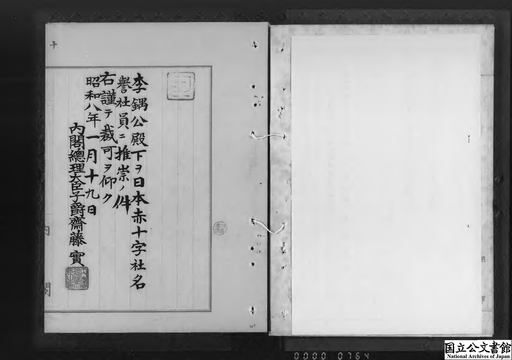 李鍝公殿下ヲ日本赤十字社名
譽社員ニ推崇ノ件
右謹テ裁可ヲ仰ク
昭和八年一月十九日
內閣總理大臣子爵齋藤實
內閣
0000 0764
国立公文書館
National Archives of Japan